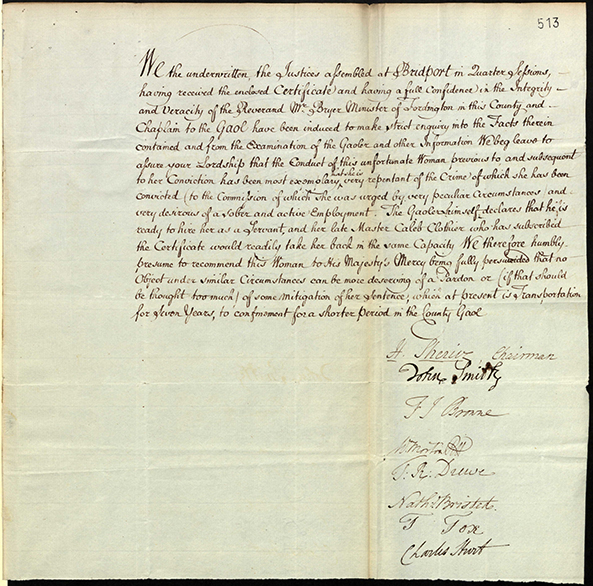 513
We the underwritten, the Justices assembled at Bridport in Quarter Sessions,
having received the enclosed Certificate and having a full Confidence in the Integrity
and Veracity of the Reverend Mr. Bryer Minister of Fordington in this County and
Chaplain to the Gaol have been induced to make strict enquiry into the Facts therein
contained and from the Examination of the Gaoler and other Information We beg leave to
assure your Lordship that the Conduct of this unfortunate Woman previous to and subsequent
to her Conviction has been most exemplary, that she is very repentant of the Crime of which she has been
convicted (to the Commission of which she was urged by very peculiar Circumstances) and
very desirous of a sober and active Employment. The Gaoler himself declares that he is
ready to hire her as a Servant, and her late Master Caleb Clothier who has subscribed
the Certificate would readily take her back in the same Capacity. We therefore humbly
presume to recommend this Woman to His Majesty's Mercy being fully persuaded that no
Object under similar Circumstances can be more deserving of a Pardon or (if that should
be thought too much) of some mitigation of her Sentence, which at present is Transportation
for Seven Years, to confinement for a shorter Period in the County Gaol
Chairman
John Smith
F J Browne
T. R. Drewe
Nathl. Bristed
T Fox
Charles Sturt